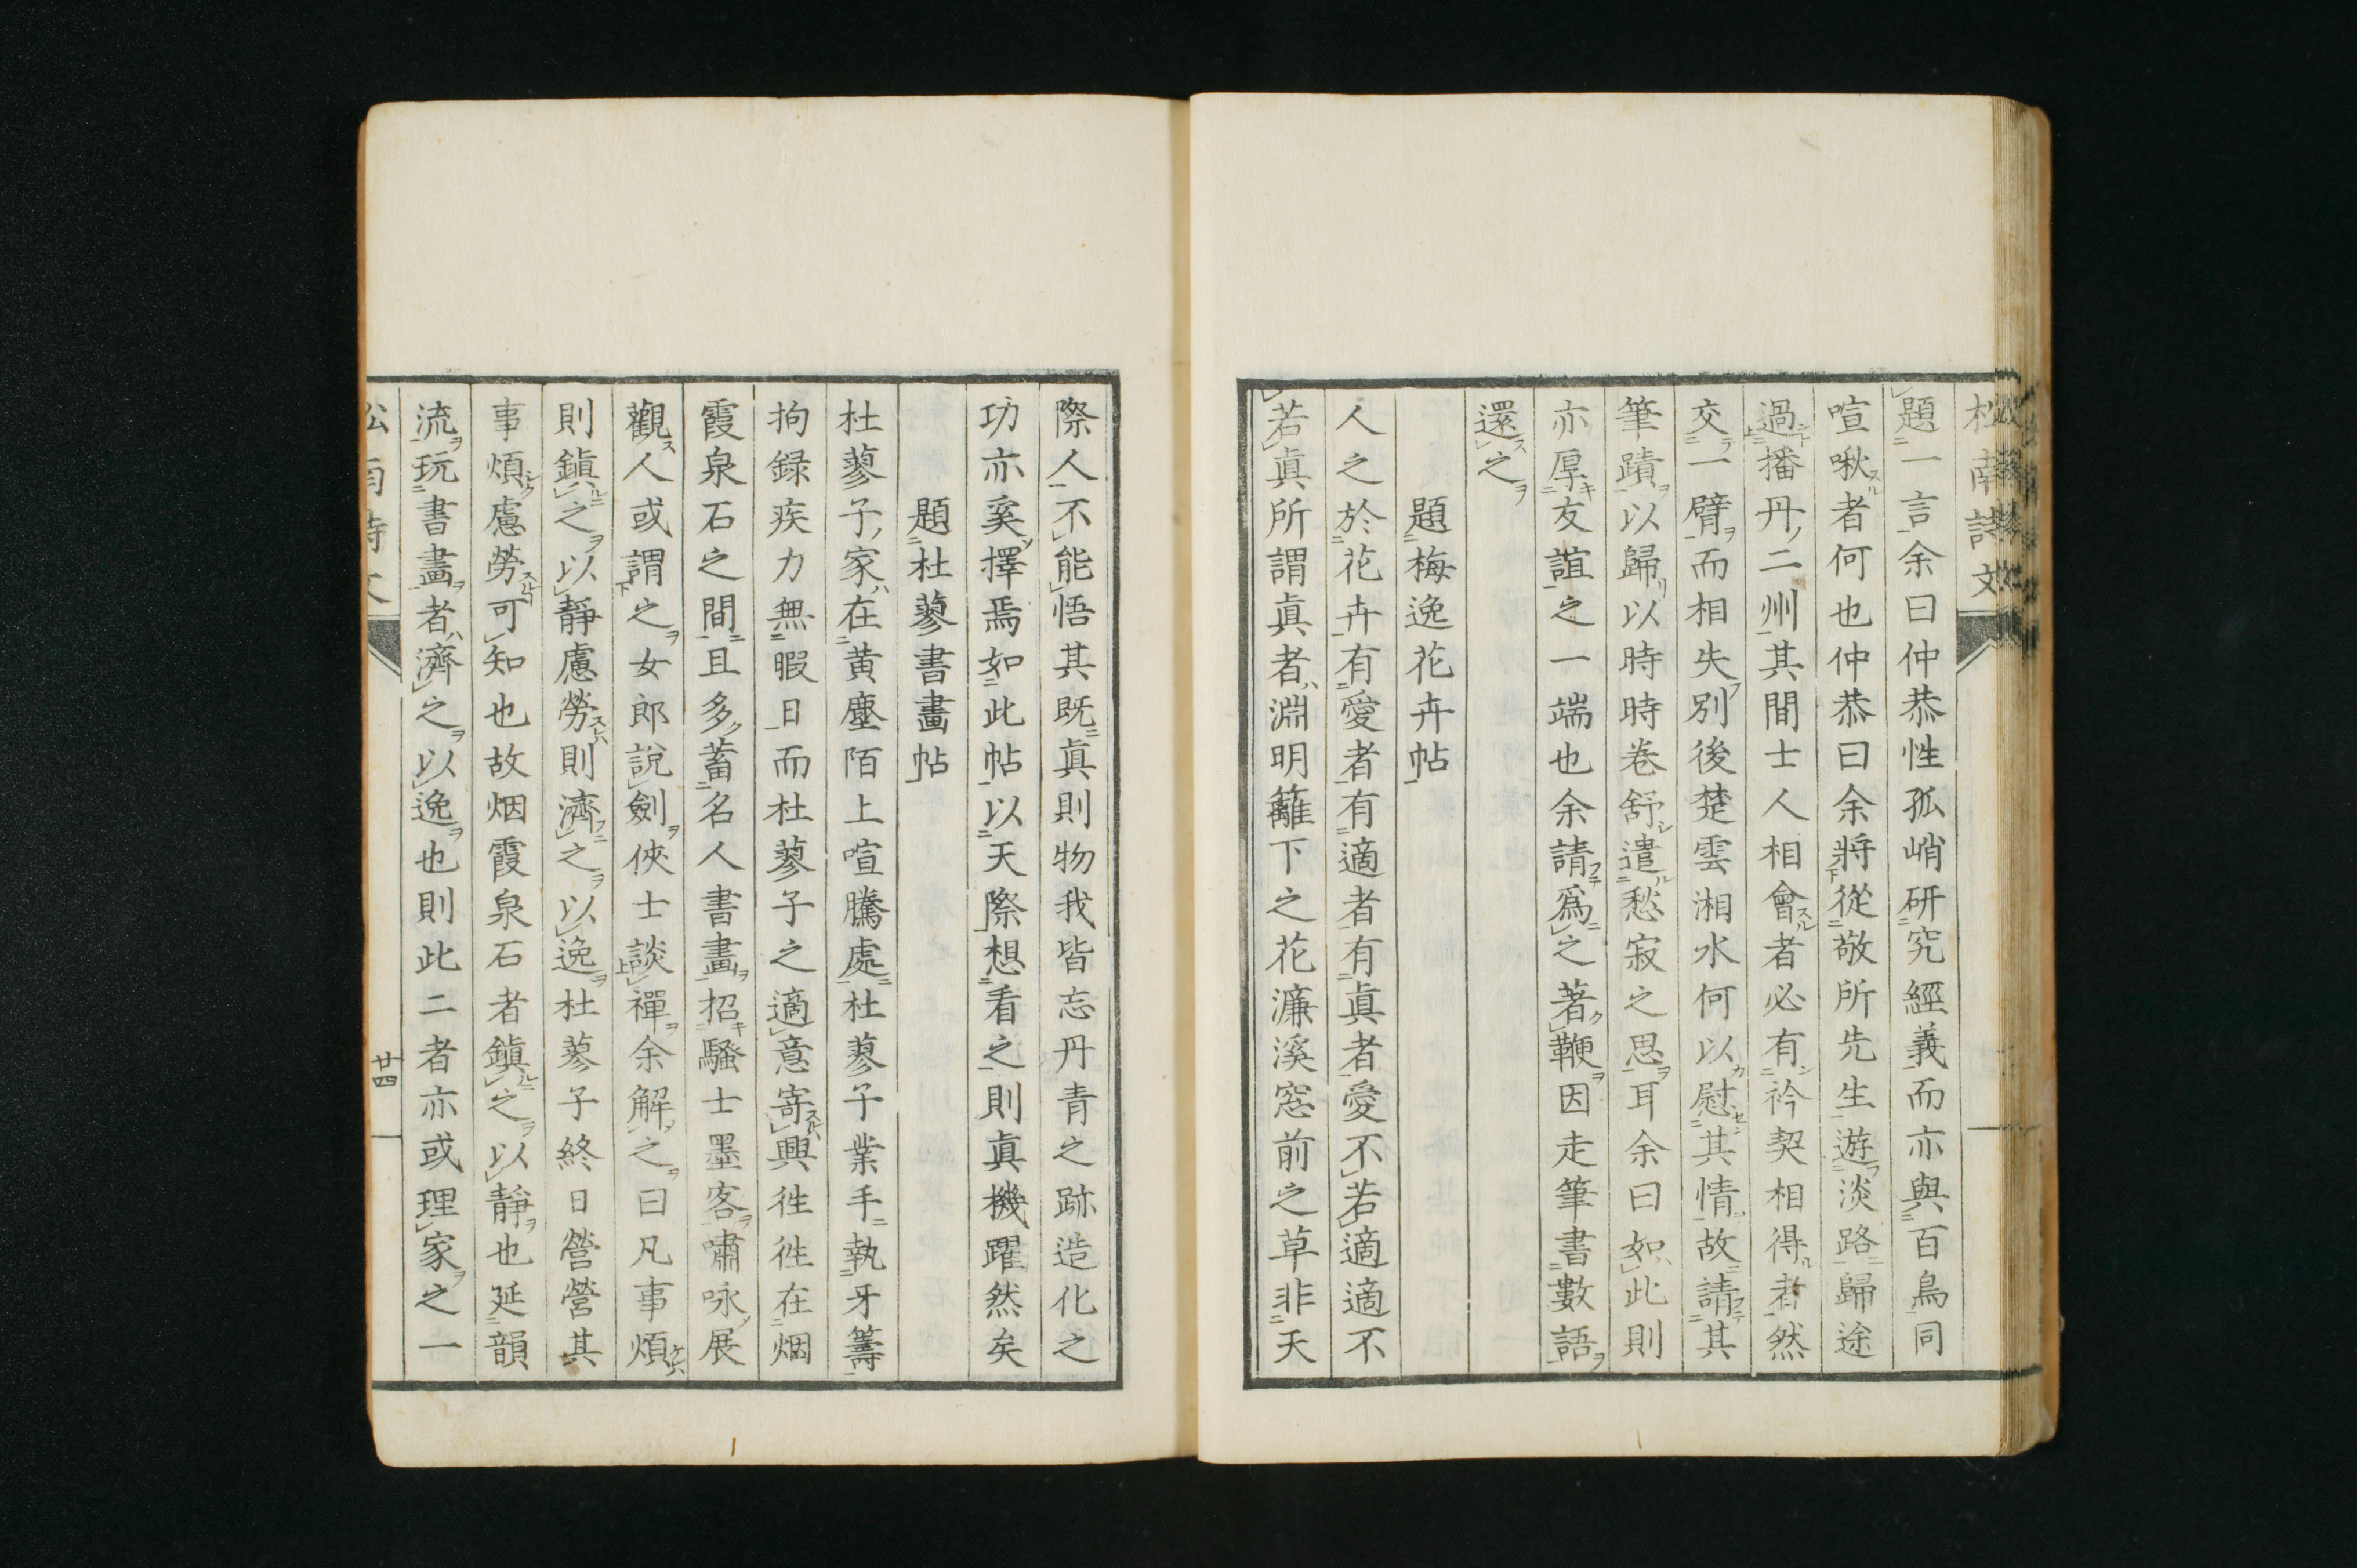 松南詩文
題一言余曰仲恭性孤峭研究經義而亦與百鳥同
喧啾者何也仲恭曰余將從敬所先生遊淡路歸途
過播丹二州其間士人相會者必有衿契相得者然
交一臂而相失別後楚雲湘水何以慰其情故請其
筆蹟以歸以時時卷舒遣愁寂之思耳余曰如此則
亦厚友誼之一端也余請爲之著鞭因走筆書數語
還之
題梅逸花卉帖
人之於花卉有愛者有適者有眞者愛不若適適不
若眞所謂眞者淵明籬下之花濂溪窓前之草非天
際人不能悟其既眞則物我皆忘丹青之跡造化之
功亦奚擇焉如此帖以天際想看之則眞機躍然矣
題杜蓼書畫帖
杜蓼子家在黄塵陌上喧騰處杜蓼子業手執牙籌
拘録疾力無暇日而杜蓼子之適意寄興徃徃在烟
霞泉石之間且多蓄名人書畫招騷士墨客嘯咏展
觀人或謂之女郎說劍俠士談禪余解之曰凡事煩
則鎭之以靜慮勞則濟之以逸杜蓼子終日營營其
事煩慮勞可知也故烟霞泉石者鎭之以靜也延韻
流玩書畫者濟之以逸也則此二者亦或理家之一
廿四